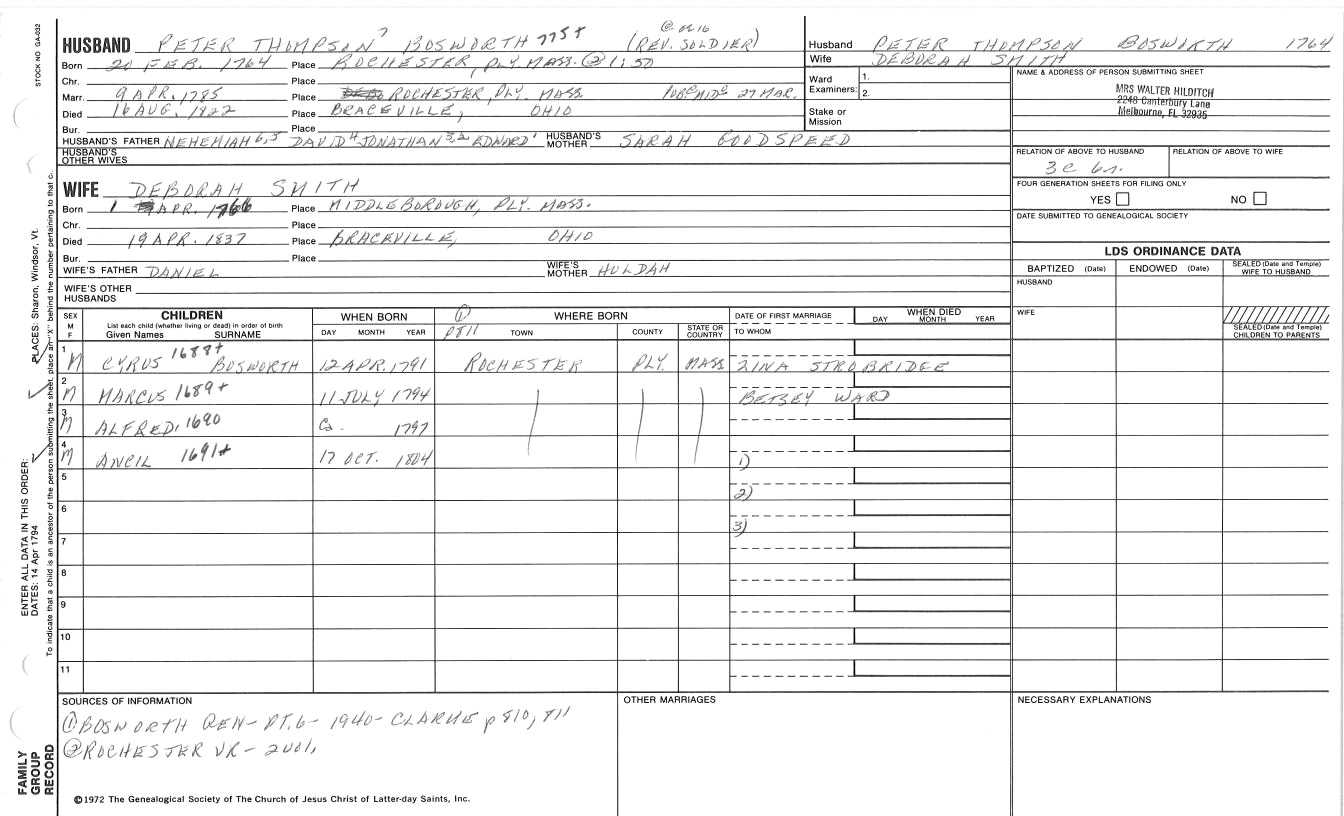 STOCK NO GA-032
HUSBAND PETER THOMPSON 7 BOSWORTH 775+ (REV. SOLDIER)
Born 20 FEB. 1764 Place ROCHESTER, PLY. MASS. ② 1:50
Chr. Place
Marr. 9 APR. 1785 Place ROCHESTER, PLY. MASS 27 MAR.
Died 16 AUG. 1822 Place BRACEVILLE, OHIO
Bur. Place
HUSBAND'S FATHER NEHEMIAH 6,5 DAVID 4 JONATHAN 3,2 EDWARD 1 HUSBAND'S MOTHER SARAH GOODSPEED
HUSBAND'S OTHER WIVES
WIFE DEBORAH SMITH
Born 1 APR. 1766 Place MIDDLEBOROUGH, PLY. MASS.
Chr. Place
Died 19 APR. 1837 Place BRACEVILLE, OHIO
Bur. Place
WIFE'S FATHER DANIEL WIFE'S MOTHER HULDAH
WIFE'S OTHER HUSBANDS
Husband PETER THOMPSON BOSWORTH 1764
Wife DEBORAH SMITH
Ward Examiners: 1.
2.
Stake or Mission
NAME & ADDRESS OF PERSON SUBMITTING SHEET
MRS WALTER HILDITCH
2248 Canterbury Lane
Melbourne, FL 32935
RELATION OF ABOVE TO HUSBAND RELATION OF ABOVE TO WIFE
3C 6r.
FOUR GENERATION SHEETS FOR FILING ONLY
YES NO
DATE SUBMITTED TO GENEALOGICAL SOCIETY
LDS ORDINANCE DATA
BAPTIZED (Date) ENDOWED (Date) SEALED (Date and Temple) WIFE TO HUSBAND
HUSBAND
WIFE
SEALED (Date and Temple) CHILDREN TO PARENTS
SEX M F
CHILDREN
List each child (whether living or dead) in order of birth
Given Names SURNAME
WHEN BORN
DAY MONTH YEAR
① P811
WHERE BORN
TOWN COUNTY STATE OR COUNTRY
DATE OF FIRST MARRIAGE
TO WHOM
WHEN DIED
DAY MONTH YEAR
1 M CYRUS 1688+ BOSWORTH 12 APR. 1791 ROCHESTER PLY. MASS ZINA STROBRIDGE
2 M MARCUS 1689+ 11 JULY 1794 BETSEY WARD
3 M ALFRED, 1690 Ca. 1797
4 M ANCIL 1691+ 17 OCT. 1804 1)
5 2)
6 3)
7
8
9
10
11
SOURCES OF INFORMATION
① BOSWORTH GEN- PT.6- 1940- CLARKE p 810, 811
② ROCHESTER VR- 2 vol.
OTHER MARRIAGES
NECESSARY EXPLANATIONS
©1972 The Genealogical Society of The Church of Jesus Christ of Latter-day Saints, Inc.
FAMILY GROUP RECORD
ENTER ALL DATA IN THIS ORDER:
DATES: 14 Apr 1794
PLACES: Sharon, Windsor, Vt.
To indicate that a child is an ancestor of the person submitting the sheet, place an "X" behind the number pertaining to that c.